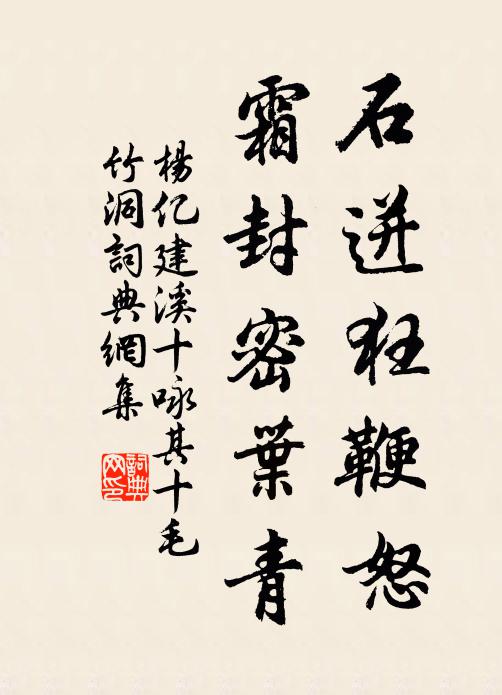 石迸狂鞭怒
霜封密葉青
楊亿建溪十咏其十毛
竹洞詞典網集
詞典
网印